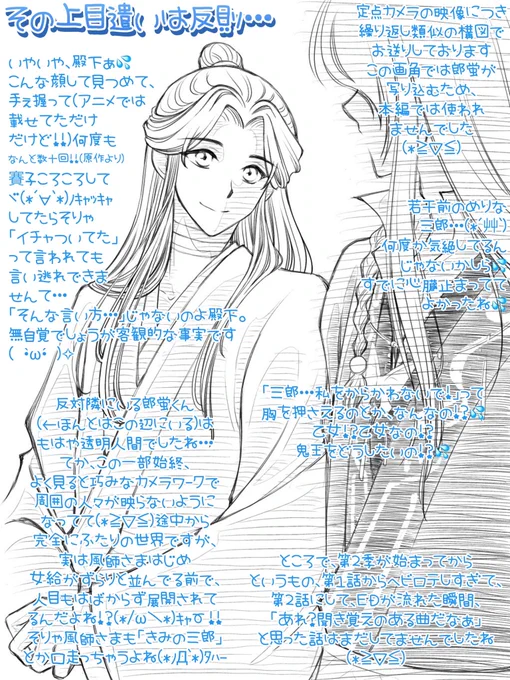 その上目遣いは反則…
いやいや、殿下ぁ💦
こんな顔して見つめて、
手ぇ握って(アニメでは
載せてただけ
だけど!!)何度も
なんと数十回!!(原作より)
賽子ころころして
ヾ(*´∀`*)ﾉｷｬｯｷｬ
してたらそりゃ
「イチャついてた」
って言われても
言い逃れできま
せんで…
「そんな言い方…」じゃないのよ殿下。
無自覚でしょうが客観的な事実です
( ・`ω・´)✧
定点カメラの映像につき
繰り返し類似の構図で
お送りしております
この画角では郎蛍が
写り込むため、
本編では使われ
ませんでした
(*≧∇≦)
若干前のめりな、
三郎…(*´艸`)
何度か気絶してるん
じゃないかしら💦
すでに心臓止まってて
よかったね💦
「三郎…私をからかわないで!」って
胸を押さえるのとか、なんなの!?💦
乙女!?乙女なの!?
鬼王をどうしたいの!?💦
反対隣にいる郎蛍くん
(←ほんとはこの辺にいる)は
もはや透明人間でしたね…
てか、この一部始終、
よく見ると巧みなカメラワークで
周囲の人々が映らないように
なってて(*≧∇≦)途中から
完全にふたりの世界ですが、
実は風師さまはじめ
女給がずらりと並んでる前で、
人目もはばからず展開されて
るんだよね!?(*/ω＼*)ｷｬʊ!!
そりゃ風師さまも「きみの三郎」
とか口走っちゃうよね(*ﾉДﾟ*)ﾀﾊｰ
ところで、第2季が始まってから
というもの、第1話からヘビロテしすぎて、
第2話にして、EDが流れた瞬間、
「あれ?聞き覚えのある曲だなぁ」
と思った話はまだしてませんでしたね
(*≧∇≦)